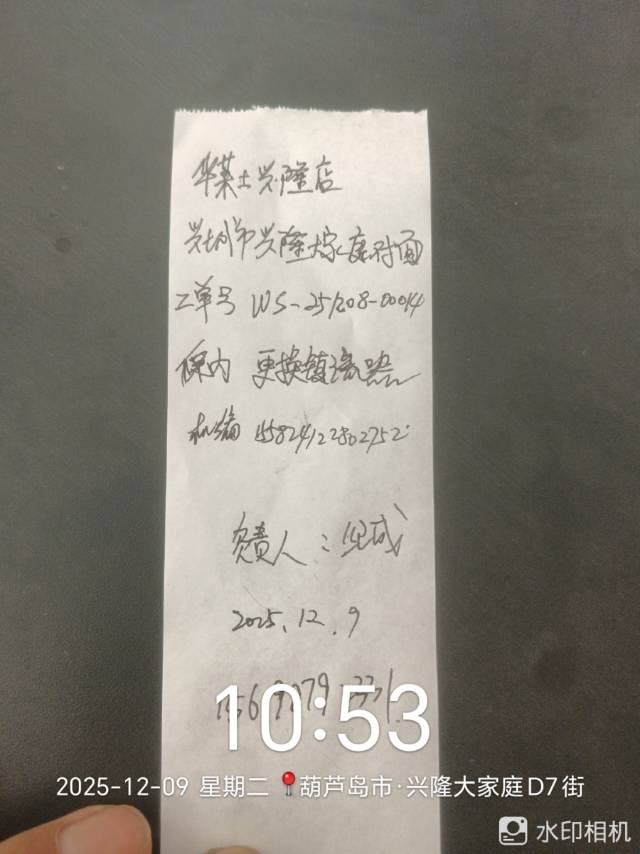 华莱士兴隆店
兴城市兴隆大家庭对面
工单号 WS-251208-00014
保内 更换镇流器
机编 15824122802752
负责人：
2025.12.9
10:53
2025-12-09 星期二 葫芦岛市·兴隆大家庭D7街
水印相机